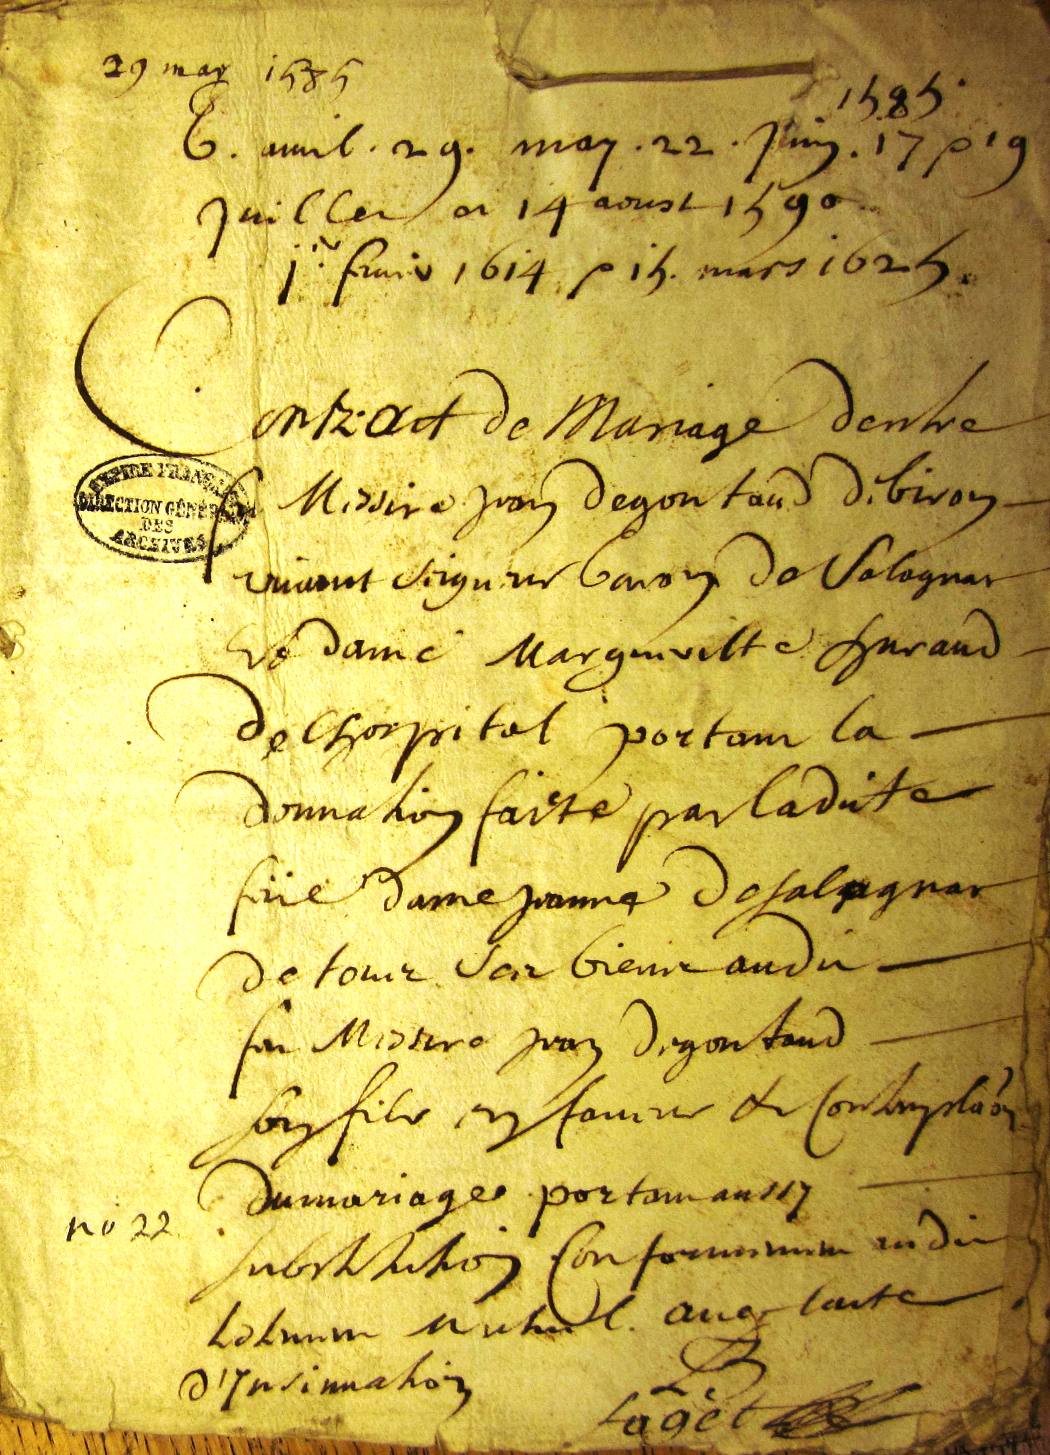 29 may 1585
1585.
6. auril. 29. may. 22. Juin. 17 & 19
Juillet et 14 aoust 1590
1er feurier 1614 & 15. mars 1625.
Contract de Mariage dentre
EMPIRE FRANÇAIS
DIRECTION GÉNÉRALE
DES
ARCHIVES
feu Messire jean degontaud de biron
viuant seigneur baron de Salagnac
et dame Marguerilte huraud
de lhospital portant la
donnation faite par ladite
feüe dame jeanne de salagnac
de tous ses biens audit
feu Messire jean degontaud
son fils en faueur & Contemplaon
du mariage portant aussy
no 22
substitution Conformement audit
testament Mutuel. auec lacte
d'Insinnation
Laget